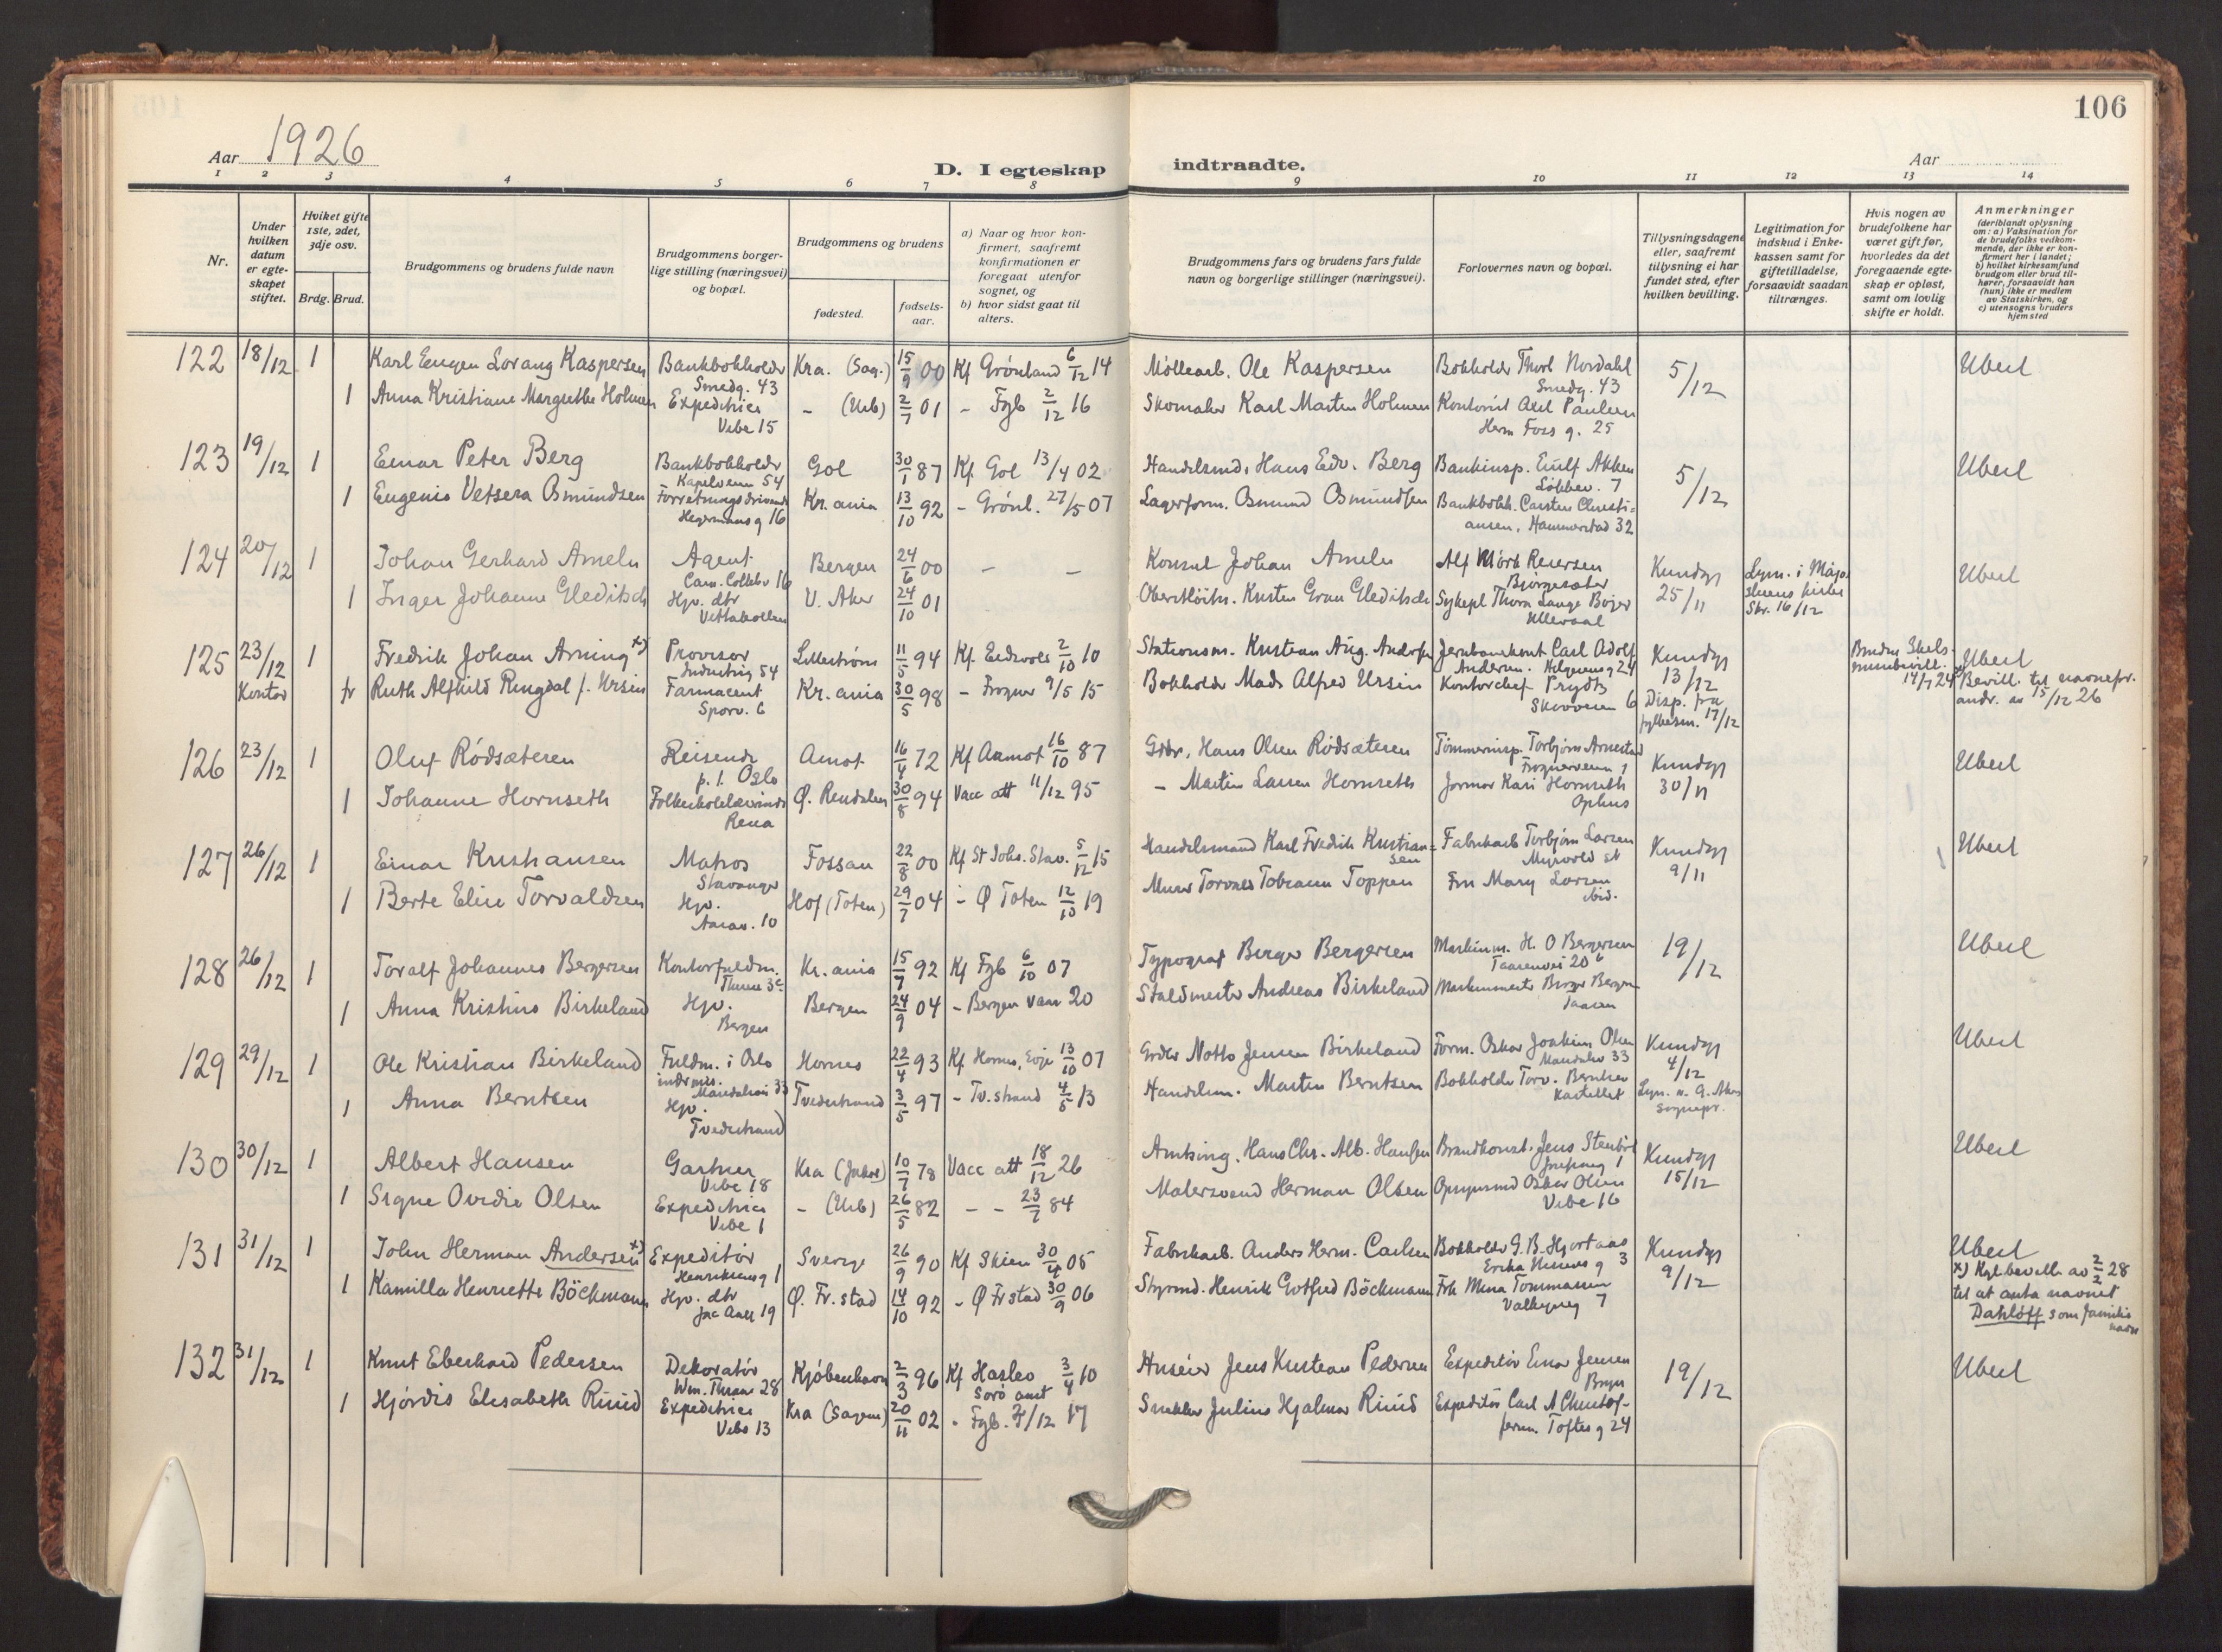 106
Aar 1926
Aar
D. I egteskap indtraadte.
1 2 3 4 5 6 7 8 9 10 11 12 13 14
Nr.
Under hvilken datum er egteskapet stiftet.
Hviket gifte 1ste, 2det, 3dje osv.
Brdg. Brud.
Brudgommens og brudens fulde navn
Brudgommens borgerlige stilling (næringsvei) og bopæl.
Brudgommens og brudens
fødested.
fødselsaar.
a) Naar og hvor konfirmert, saafremt konfirmationen er foregaat utenfor sognet, og
b) hvor sidst gaat til alters.
Brudgommens fars og brudens fars fulde navn og borgerlige stillinger (næringsvei).
Forlovernes navn og bopæl.
Tillysningsdagene eller, saafremt tillysning ei har fundet sted, efter hvilken bevilling.
Legitimation for indskud i Enkekassen samt for giftetilladelse, forsaavidt saadan tiltrænges.
Hvis nogen av brudefolkene har været gift før, hvorledes da det foregaaende egteskap er opløst, samt om lovlig skifte er holdt.
Anmerkninger
(deriblandt oplysning om: a) Vaksination for de brudefolks vedkommende, der ikke er konfirmert her i landet; b) hvilket kirkesamfund brudgom eller brud tilhører, forsaavidt han (hun) ikke er medlem av Statskirken, og c) utensogns bruders hjemsted
122 18/12 1 Karl Eugen Lorang Kaspersen Bankbokholder Smedg. 43 Kra. (Sag.) 15/9 00 Kf Grönland 6/12 14 Möllearb. Ole Kaspersen Bokholder Thorl Nordahl Smedg. 43 5/12 Uberl
1 Anna Kristiane Margrethe Holmen Expeditrice Vibe 15 - (Urb) 2/7 01 - Fgb 2/12 16 Skomaker Karl Martin Holmen Kontorist Axel Paulsen Herm Foss g. 25
123 19/12 1 Einar Peter Berg Bankbokholder Kapelveien 54 Gol 30/1 87 Kf. Gol 13/4 02 Handelsmd. Hans Edv. Berg Bankinsp. Eilif Akken Løkkev. 7 5/12 Uberl
1 Eugenie Vetsera Osmundsen Forretningsdrivende Hegermans g 16 Kr.ania 13/10 92 - Grönl. 27/5 07 Lagerform. Osmund Osmundsen Bankbokh. Carsten Christiansen, Hammerstad 32
124 20/12 1 Johan Gerhard Ameln Agent Cam. Colletts v 16 Bergen 24/6 00 - - Konsul Johan Ameln Alf Mörk Reiersen Bjørgesæter Kundgj 25/11 Lysn. i Majorstuens kirke Skr. 16/12 Uberl
1 Inger Johanne Gleditsch Hjv. dtr Vettakollen V. Aker 24/10 01 Oberstlöitn. Kristen Gran Gleditsch Sykepl Thora Lange Bojer Ullevaal
125 23/12 Kontor 1 Fredrik Johan Arning x) Provisor Industrig 54 Lillestrøm 11/5 94 Kf. Eidsvold 2/10 10 Stationsm. Kristian Aug. Andersen Jernbanekont Carl Adolf Andersen. Helgesens g 24 Kundgj 13/12 Disp. fra fylkesm. 17/12 Uberl
fr Ruth Alfhild Ringdal f. Ursin Farmaceut Sporv. 6 Kr.ania 30/5 98 - Frogner 9/5 15 Bokholder Mads Alfred Ursin Kontorchef Prydtz Skovveien 6 Bruden Skilsmissebevill. 14/7 24 x) Bevill. til navnefor. andr. av 15/12 26
126 23/12 1 Oluf Rödsæteren Reisende p.t. Oslo Aamot 16/4 72 Kf Aamot 16/10 87 Grdbr. Hans Olsen Rödsæteren Tömmerinsp. Torbjörn Arnestad Frognerveien 1 Kundgj 30/11 Uberl
1 Johanne Hornseth Folkeskolelærerinde Rena Ø. Rendalen 30/8 94 Vacc att 11/12 95 - Martin Larsen Hornseth Jormor Kari Hornseth Ophus
127 26/12 1 Einar Kristiansen Matros Stavanger Fossan 22/8 00 Kf St Johs. Stav. 5/12 15 Handelsmand Karl Fredrik Kristiansen Fabrikarb Torbjörn Larsen Myrvold st Kundgj 9/11 Uberl
1 Berte Eline Torvaldsen Hjv. Aarav. 10 Hof (Toten) 29/7 04 - Ø Toten 12/10 19 Murer Torvald Tobiasen Toppen Fru Mary Larsen ibid.
128 26/12 1 Toralf Johannes Bergersen Kontorfuldm. Therese 3c Kr.ania 15/7 92 Kf Fgb 6/10 07 Typograf Berger Bergersen Maskinm. H. O Bergersen Taasenvei 20 b 19/12 Uberl
1 Anna Kristine Birkeland Hjv. Bergen Bergen 24/9 04 - Bergen vaar 20 Staldmester Andreas Birkeland Maskinmester Birger Bergersen Taasen
129 29/12 1 Ole Kristian Birkeland Fuldm. i Oslo indremis. Maridalsvei 33 Hornes 22/4 93 Kf Hornes, Evje 13/10 07 Grdbr Notto Jensen Birkeland Form. Oskar Joakim Olsen Maridalsv 33 Kundgj 4/12 Lysn. n. A. Aker sognepr. Uberl
1 Anna Berntsen Hjv. Tvedestrand Tvedestrand 3/5 97 - Tv.strand 4/5 13 Handelsm. Martin Berntsen Bokholder Torv. Berntsen Kastellet
130 30/12 1 Albert Hansen Gartner Vibe 18 Kra (Jakob) 10/7 78 Vacc att 18/12 26 Amtsing. Hans Chr. Alb. Hansen Brandkonst. Jens Stenböl Josefineg 1 Kundgj 15/12 Uberl
1 Signe Ovidie Olsen Expeditrice Vibe 1 - (Urb) 26/5 82 - - 23/7 84 Malersvend Herman Olsen Opsynsmd Oskar Olsen Vibe 16
131 31/12 1 John Herman Andersen x) Expeditör Henriksens g 1 Sverge 26/9 90 Kf Skien 30/4 05 Fabrikarb. Anders Herm. Carlsen Bokholder G. B. Hjortaas Erika Nissens g 3 Kundgj 9/12 Uberl
x) Kgl. bevill. av 2/2 28 til at anta navnet Dahlöff som familienavn
1 Kamilla Henriette Böckmann Hjv. dtr Jac Aall 19 Ø. Fr.stad 14/10 92 - Ø Frstad 30/9 06 Styrmd. Henrik Gotfred Böckmann Frk Mina Tommassen Valkyrieg 7
132 31/12 1 Knut Eberhard Pedersen Dekoratör Wm. Thrane 28 Kjöbenhavn 2/3 96 Kf Haslev Sorö amt 3/4 10 Huseier Jens Kristian Pedersen Expeditör Einar Jensen Bryn 19/12 Uberl
1 Hjördis Elisabeth Ruud Expeditrice Vibe 13 Kra (Sagene) 20/11 02 - Fgb. 7/12 17 Snekker Julius Hjalmar Ruud Expeditör Carl A Christoffersen. Toftes g 24